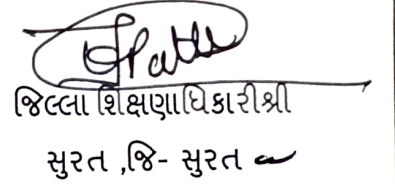 જિલ્લા શિક્ષણાધિકારીશ્રી
સુરત ,જિ- સુરત